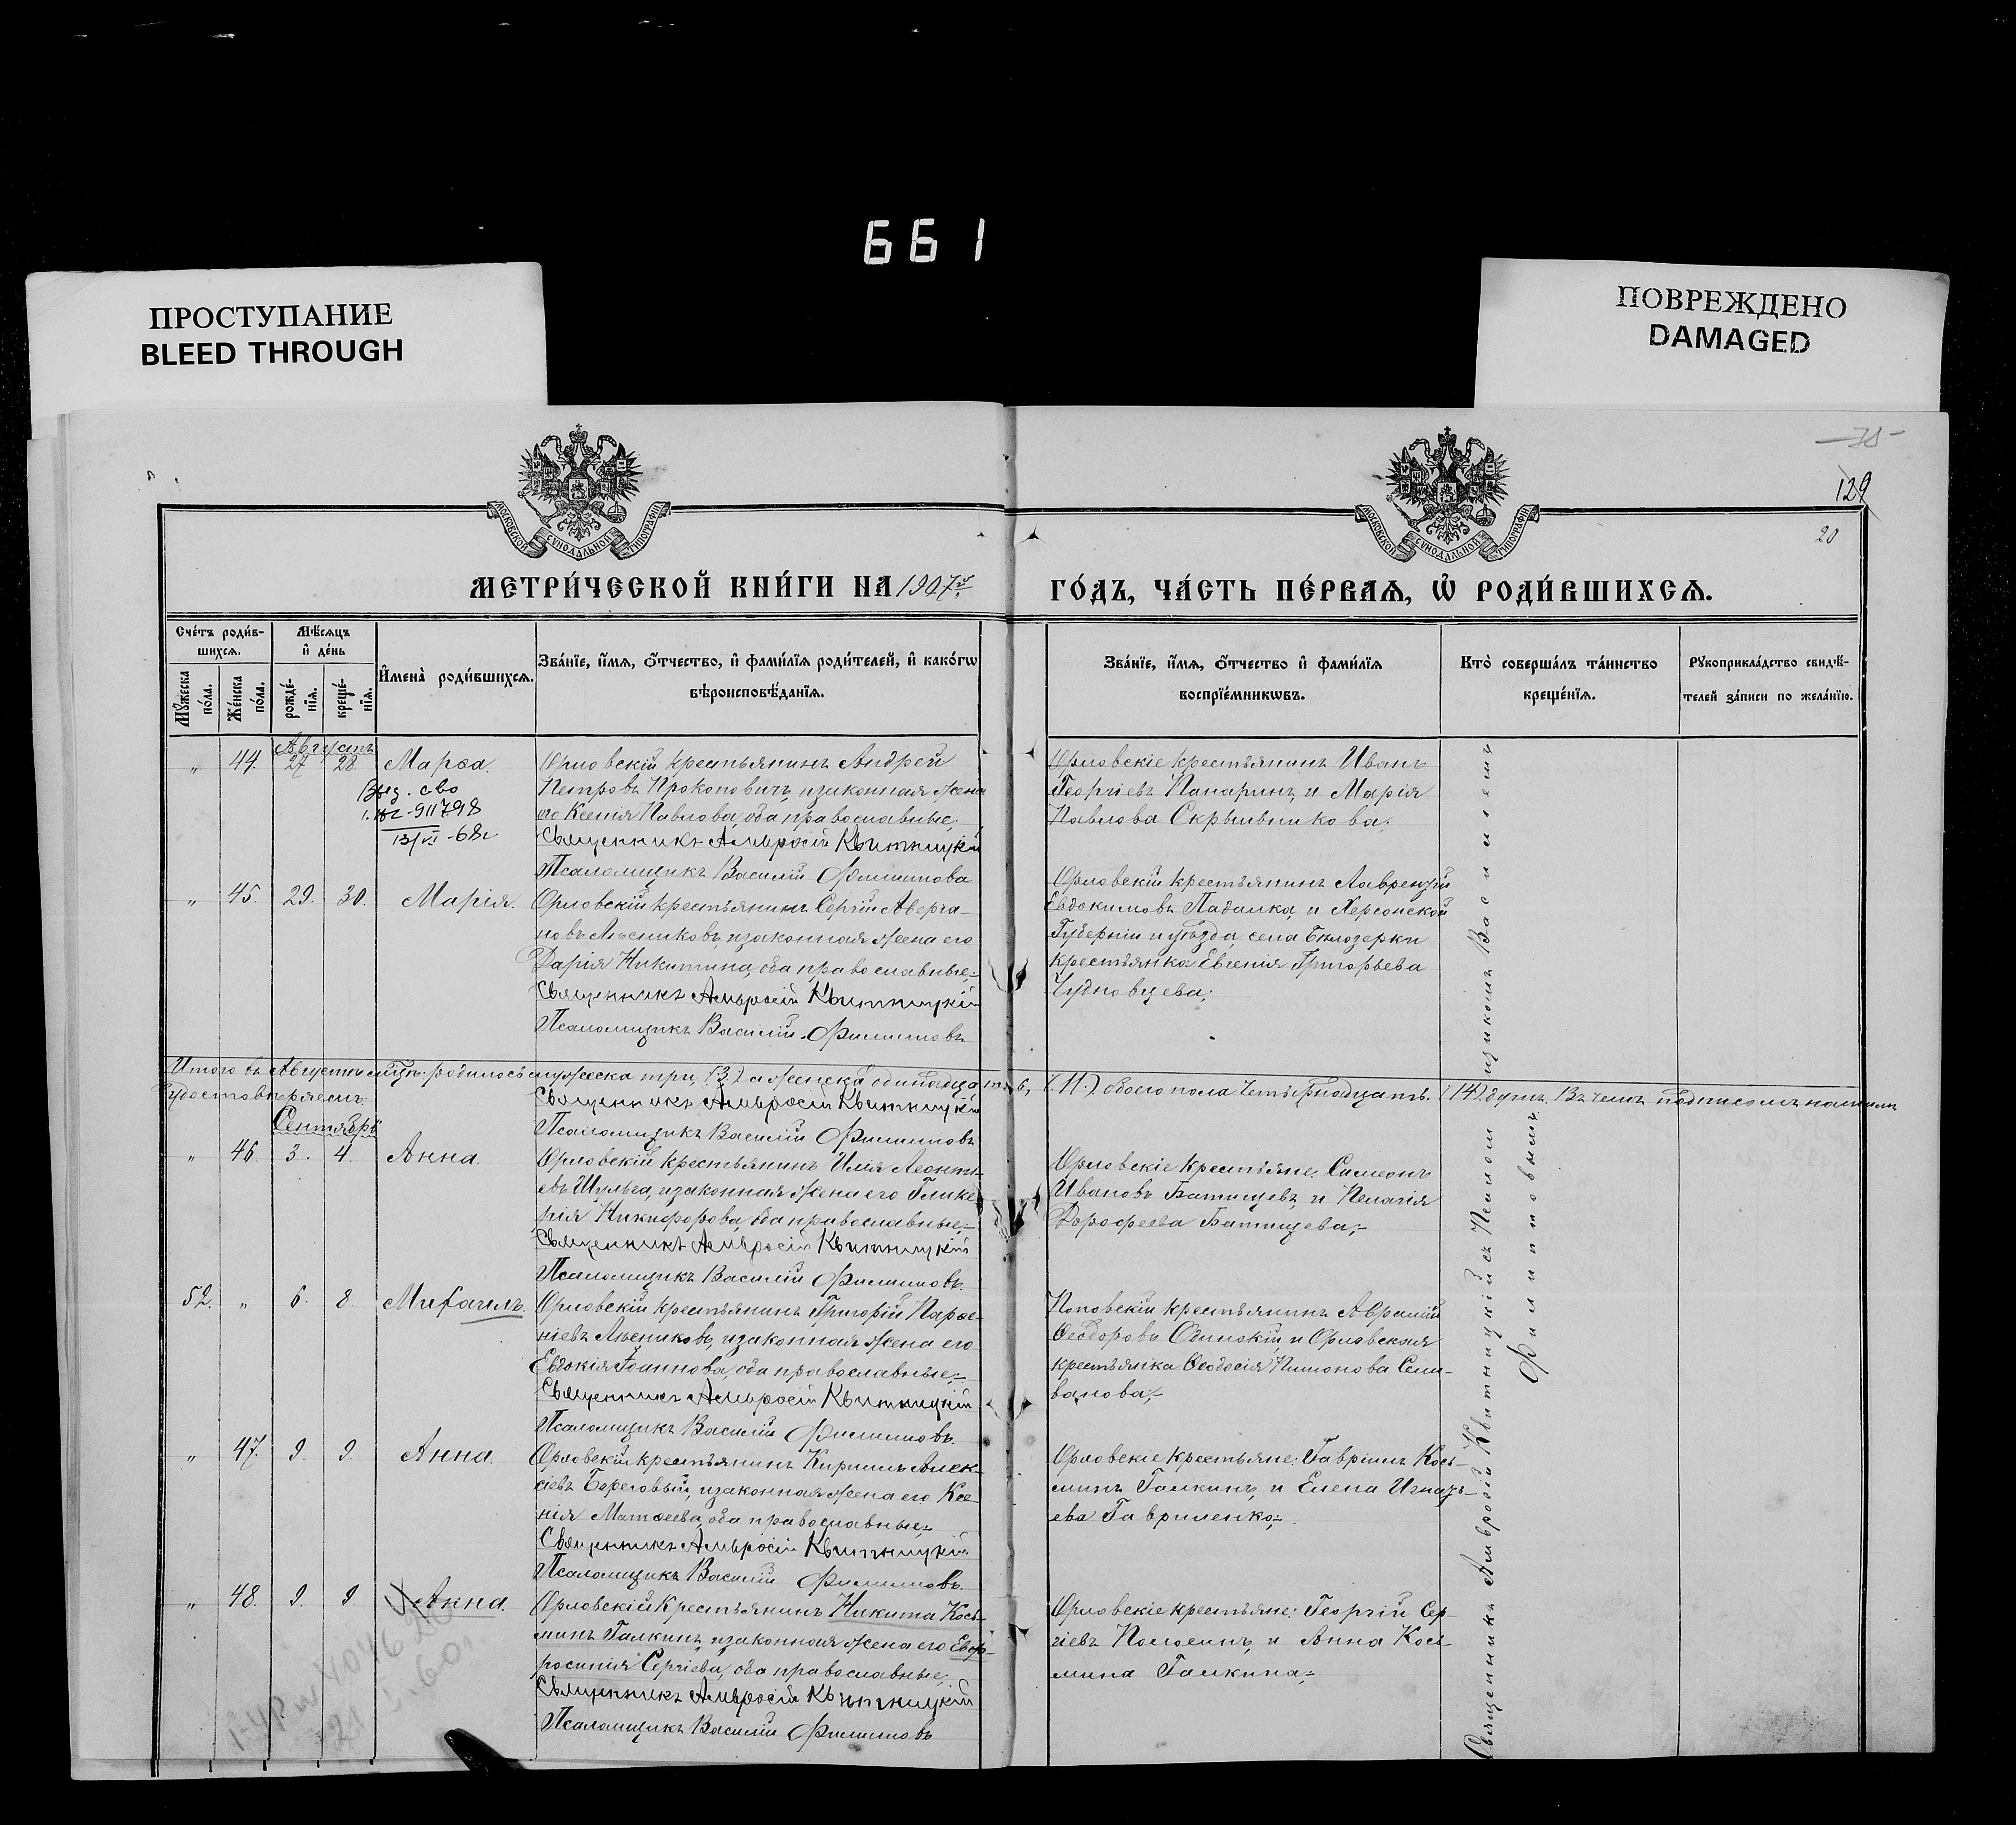 661
ПРОСТУПАНИЕ
BLEED THROUGH
ПОВРЕЖДЕНО
DAMAGED
129
20
МОСКОВСКОЙ СУНОДАЛЬНОЙ ТИПОГРАФІИ
МОСКОВСКОЙ СУНОДАЛЬНОЙ ТИПОГРАФІИ
МЕТРИ́ЧЕСКОЙ КНИ́ГИ НА 1907й
ГО́ДЪ, ЧА́СТЬ ПЕ́РВАѦ, Ѡ҆ РОДИ́ВШИХСѦ.
Сче́тъ роди́в-
шихсѧ.
Мꙋ́жеска по́ла.
Же́нска по́ла.
Мѣ́сѧцъ
и҆ де́нь
рожде́-
нїѧ.
креще́-
нїѧ.
И҆мена̀ роди́вшихсѧ.
Зва́нїе, и҆́мѧ, ѻ҆́тчество, и҆ фами́лїѧ роди́телей, и҆ како́гѡ
вѣроисповѣ́данїѧ.
Зва́нїе, и҆́мѧ, ѻ҆́тчество и҆ фами́лїѧ
воспрїе́мникѡвъ.
Кто̀ соверша́лъ та́инство
креще́нїѧ.
Рꙋкоприкла́дство свидѣ́-
телей за́писи по жела́нїю.
Августъ
„ 44. 27 28. Марѳа.
Выд. сво
911798
13/VI-68г
Орловскій крестьянинъ Андрей
Петровъ Прокоповичъ, и законная жена
его Ксенія Павлова, оба православные;
Священникъ Амвросій Квитницкій
Псаломщикъ Василій Филиппова
Орловскіе крестьянинъ Иванъ
Георгіевъ Панаринъ, и Марія
Павлова Скрыльникова;
„ 45. 29. 30. Марія.
Орловскій крестьянинъ Сергій Аверча-
новъ Лѣсниковъ, и законная жена его
Дарія Никитина, оба православные;
Священникъ Амвросій Квитницкій
Псаломщикъ Василій Филипповъ
Орловскій крестьянинъ Лаврентій
Евдокимовъ Падалка, и Херсонской
Губерніи и уѣзда, села Бѣлозерки
крестьянка Евгенія Григорьева
Чудновцева;
Итого въ Августѣ мѣсяцѣ родилось мужеска три, (3) а женска одинадцать, (11) обоего пола четырнадцать (14) душъ. Въ чемъ подписомъ нашимъ
Удостовѣряемъ:
Священникъ Амвросій Квитницкій
Псаломщикъ Василій Филипповъ
Сентябрь
„ 46. 3. 4. Анна.
Орловскій крестьянинъ Илія Леонть-
евъ Шульга, и законная жена его Глике-
рія Никифорова, оба православные;
Священникъ Амвросій Квитницкій
Псаломщикъ Василій Филипповъ.
Орловскіе крестьяне: Самеонъ
Ивановъ Батищевъ, и Пелагія
Дорофеева Батищева;
52. „ 6. 8. Михаилъ.
Орловскій крестьянинъ Григорій Парѳе-
ніевъ Лѣсниковъ, и законная жена его
Евдокія Іоаннова, оба православные;
Священникъ Амвросій Квитницкій
Псаломщикъ Василій Филипповъ.
Поповскій крестьянинъ Аврамій
Ѳеодоровъ Одинокій, и Орловская
крестьянка Ѳеодосія Пимонова Сели-
ванова;
„ 47. 9. 9. Анна.
Орловскій крестьянинъ Кириллъ Алек-
сіевъ Береговый, и законная жена его Ксе-
нія Матѳеева, оба православные;
Священникъ Амвросій Квитницкій
Псаломщикъ Василій Филипповъ.
Орловскіе крестьяне: Гавріилъ Кось-
минъ Галкинъ, и Елена Игнать-
ева Гавриленко;
„ 48. 9. 9 Анна.
Орловскій крестьянинъ Никита Кось-
минъ Галкинъ, и законная жена его Евф-
росинія Сергіева, оба православные;
Священникъ Амвросій Квитницкій
Псаломщикъ Василій Филипповъ
Орловскіе крестьяне: Георгій Сер-
гіевъ, и Анна Кось-
мина Галкина;
Священникъ Амвросій Квитницкій съ Псаломщикомъ Василіемъ
Филипповымъ.